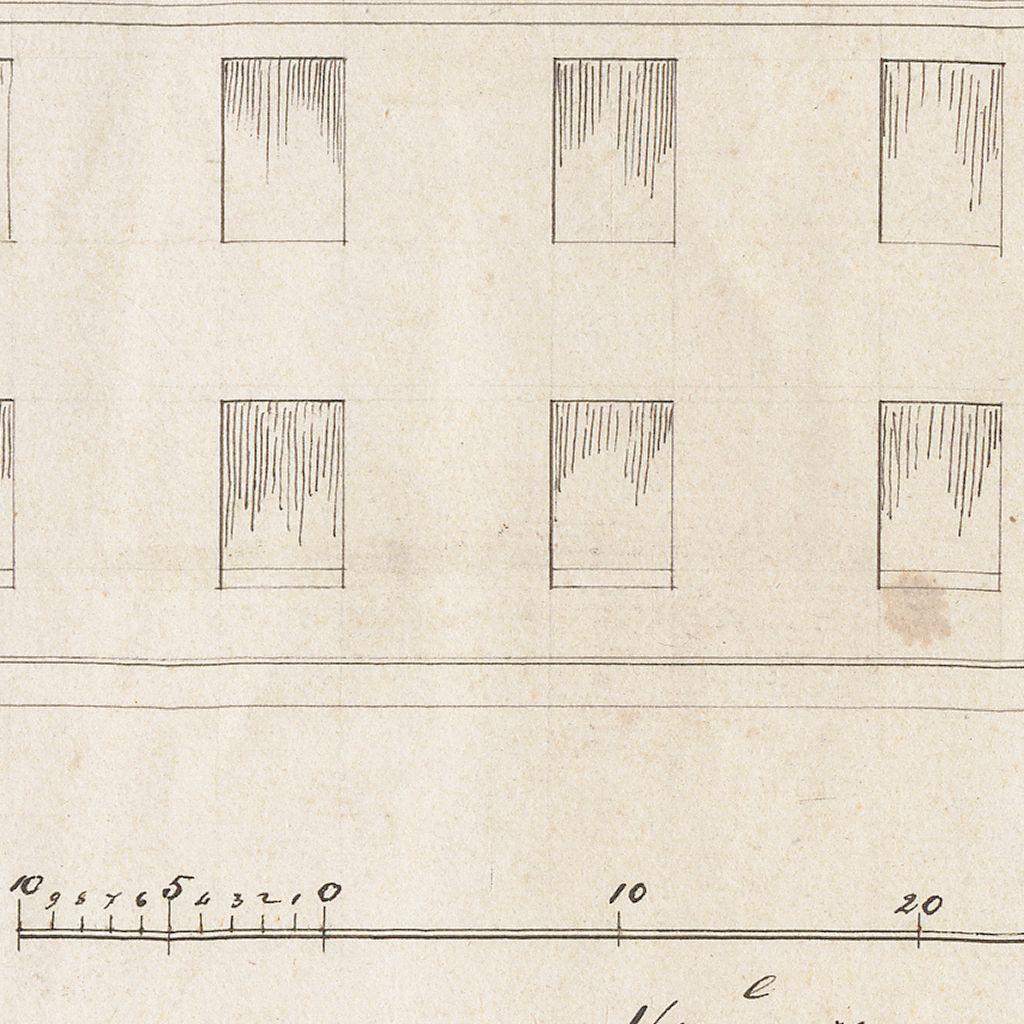 10 9 8 7 6 5 4 3 2 1 0 10 20
e